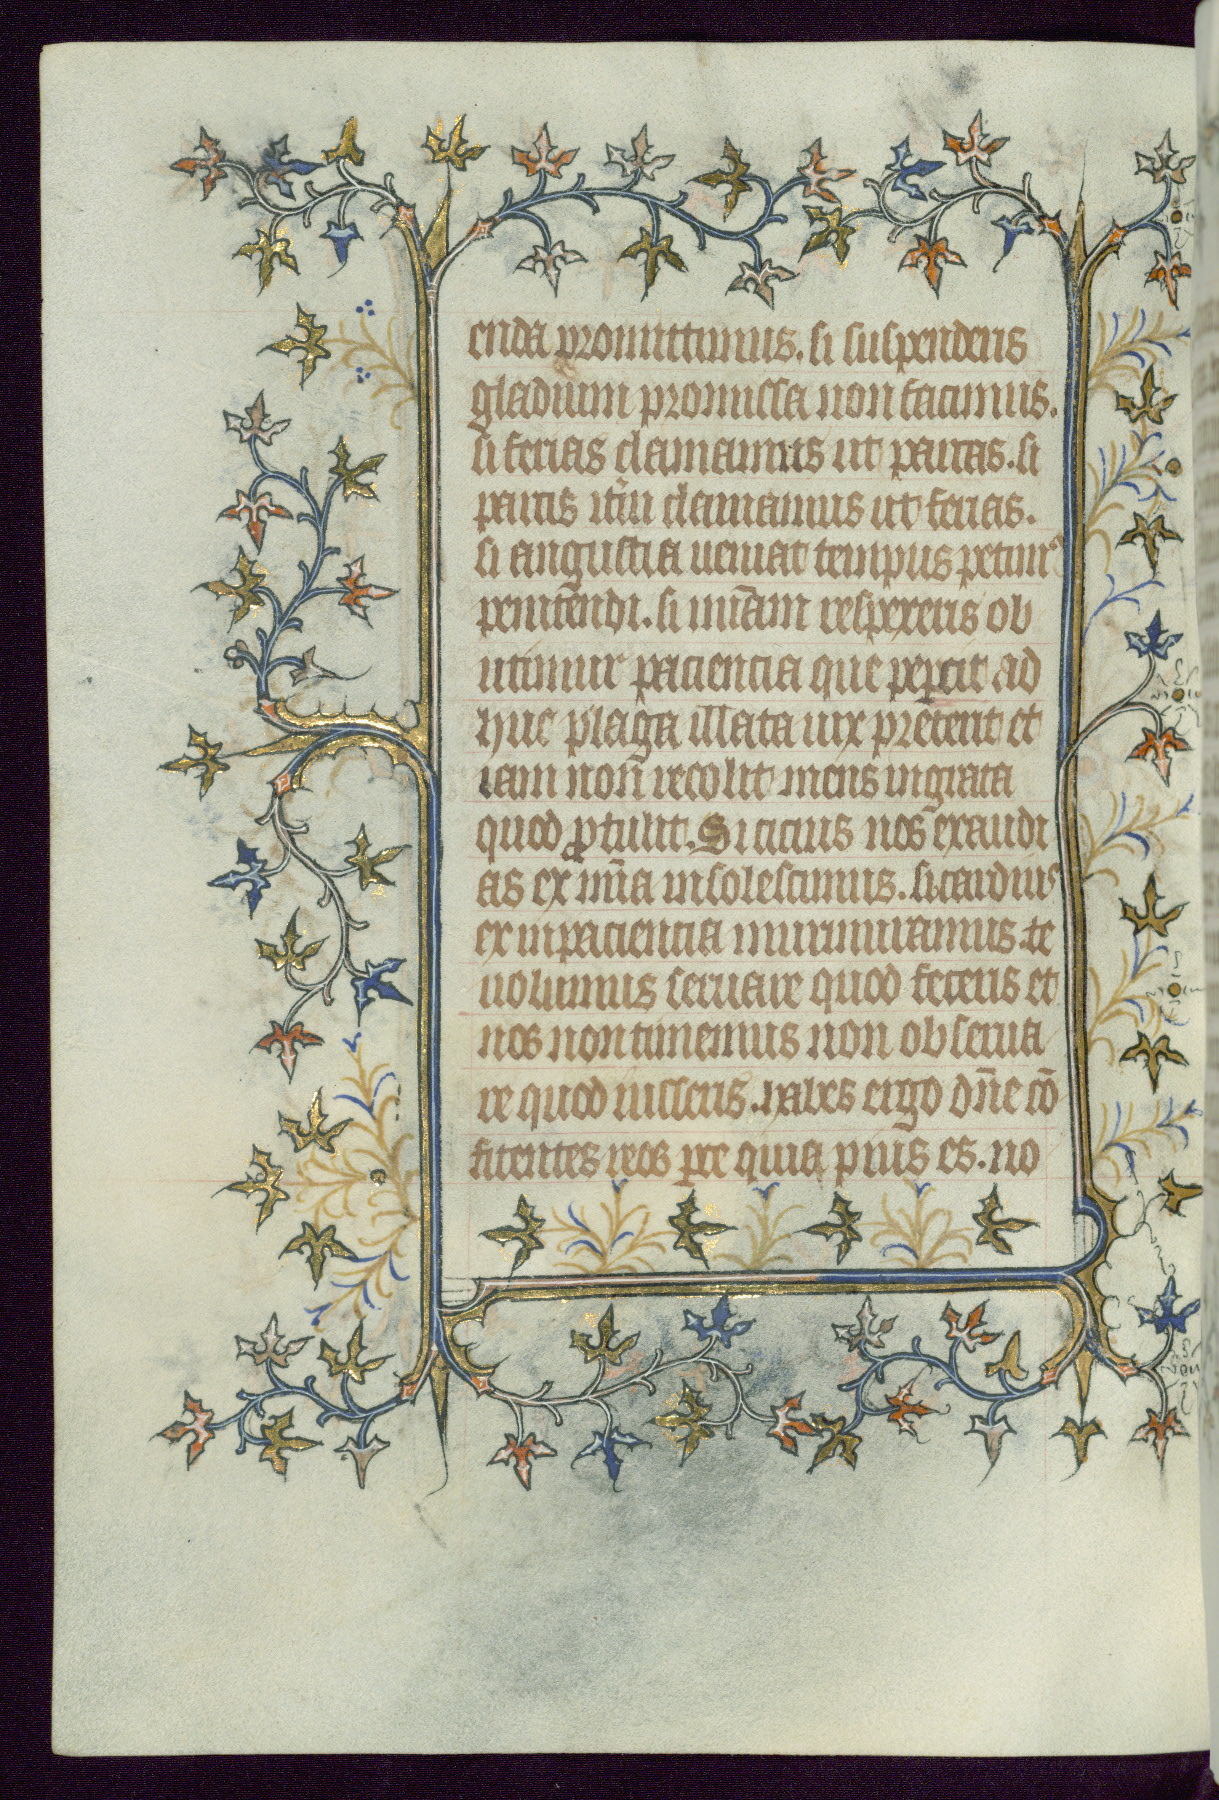 enda promittimus. si suspenderis
gladium promissa non facimus.
si ferias clamamus ut parcas. si
parcis it̄m clamamus ut ferias.
si angustia ueniat tempus petim᷒
penitēndi. si mīam respexeris ob
utimur paciencia que pepcit ad
huc plaga illata uix pretent et
iam non̄ recolit mens ingrata
quod ꝓtulit. Si cicius nos exaudi
as ex mīa insolescimus. si tardius
ex inpaciencia murmuramus. te
uolumus seruare quod feceris et
nos non timemus non obserua
re quod iusseris. habes ergo dn̄e cō
fitentes reos pre quia pius es. no